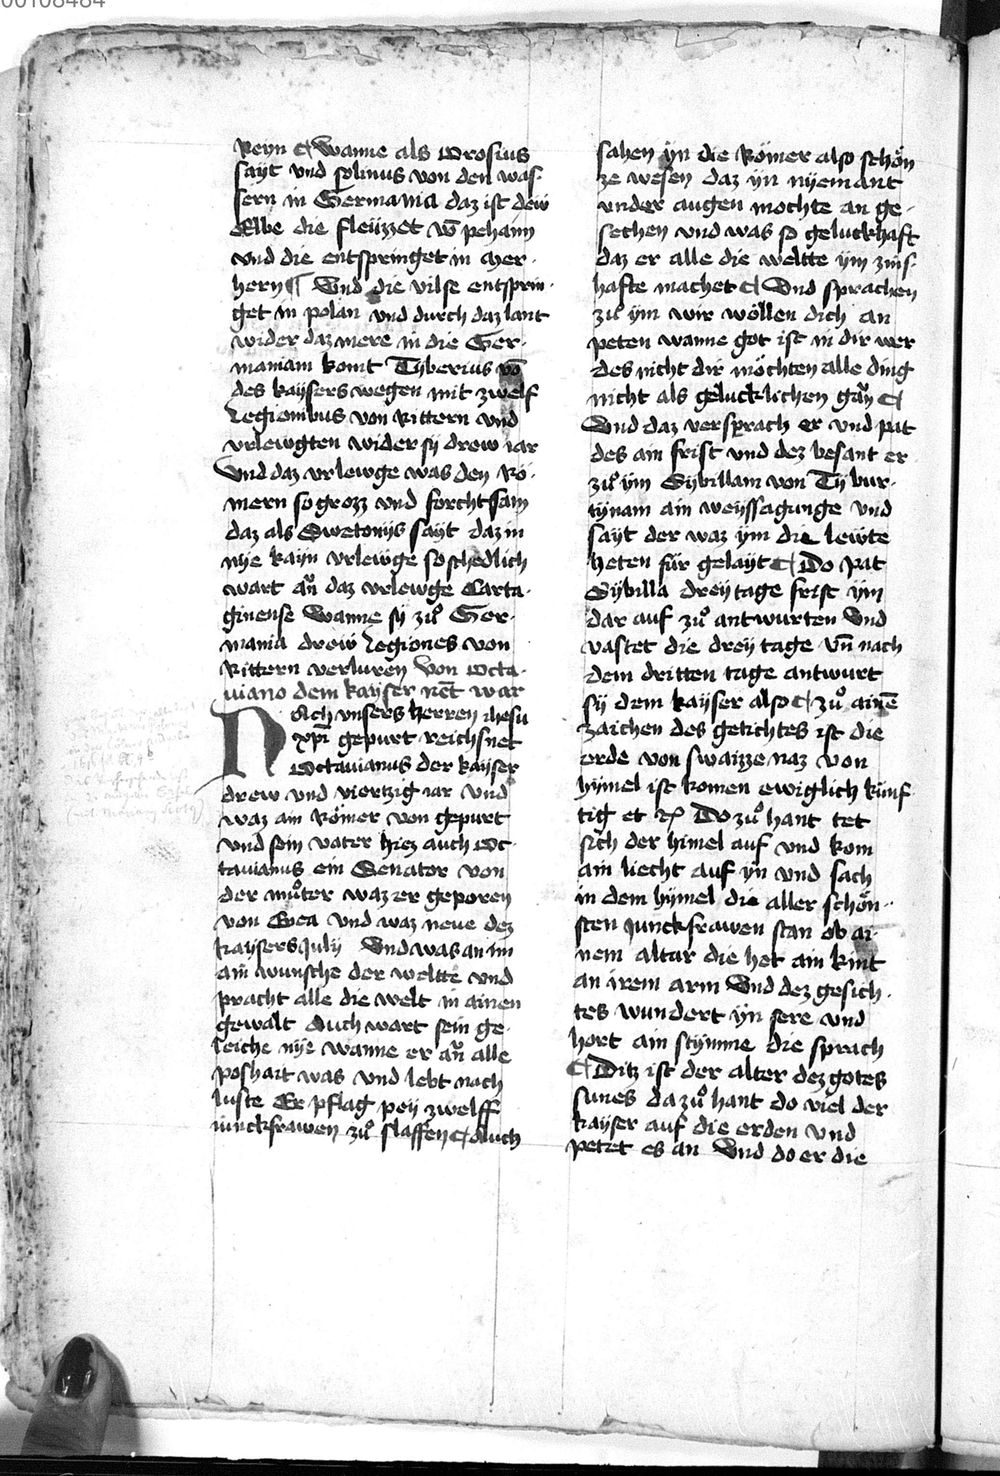 00108484
Reyn ¶ Wanne als Orosius
sayt vnd solinus von den was-
sern in Germania daz ist dew
Elbe die fleüzzet vō pehaim
vnd die entspringet in Mer-
hern ¶ Und die vilse entsprin-
get in polan vnd durch daz lant
wider daz mere in die Ger-
maniam komt Tyberius vō
des kaysers wegen mit zwelf
Legionibus von Rittern vnd
vrlewgten wider sy drew iar
Und daz vrlewge was den Rö-
mern so grozz vnd forchtsam
daz als Swetonijs sayt daz in
nye kayn vrlewge so schedlich
wart an̄ daz vrlewge Carta-
ginense Wanne sy zuͦ Ger-
mania drew Legiones von
Rittern verluren Von Octa-
uiano dem kayser nēt war
NAch vnsers herren ihesu
xp̄i gepurt reichsnet
Octauianus der kayser
drew vnd viertzig iar vnd
waz ain Römer von gepurt
vnd sein vater hiez auch Oc-
tauianus ein Senator von
der muͦter waz er geporen
von Enea vnd waz neue dez
kaysers July Und was an im
ain wunsche der weltte vnd
pracht alle die welt in ainen
gewalt Auch wart sein ge-
leiche nye wanne er an̄ alle
poshait was vnd lebt nach
luste Er pflag pey zwelff
iunckfrawen zuͦ slaffen ¶ Auch
sahen yn die Römer also schön
ze wesen daz yn nyemant
vnder augen mochte an ge-
sechen vnd was so geluckhaft
daz er alle die weltte ym zins-
hafte machet ¶ Und sprachen
zuͦ ym wir wöllen dich an
peten wanne got ist in dir wer
des nicht dir möchten alle ding
nicht als gelucklichen gan̄ ¶
Und daz versprach er vnd pat
des ain frist vnd dez besant er
zuͦ ym Sybillam von Tybur-
tynam ain weyssagunge vnd
sayt der waz ym die lewte
heten für gelayt ¶ Do pat
Sybilla drey tage frist ym
dar auf zuͦ antwurten Und
vastet die drey tage vn̄ nach
dem dritten tage antwurt
sy dem kayser also ¶ zuͦ ainē
zaichen des gerichtes ist die
erde von swaizze naz von
hymel ist komen ewiglich künf-
tig et cͣ Do zuͦ hant tet
sich der himel auf vnd kom
ain liecht auf yn vnd sach
in dem hymel die aller schön-
sten Junckfrawen stan ob ai-
nem altar die het ain kint
an irem arm Und dez gesich-
tes wundert yn sere vnd
hort ain stymme die sprach
¶ Ditz ist der alter dez gotes
sunes da zuͦ hant do viel der
kayser auf die erden vnd
petet es an Und do er die